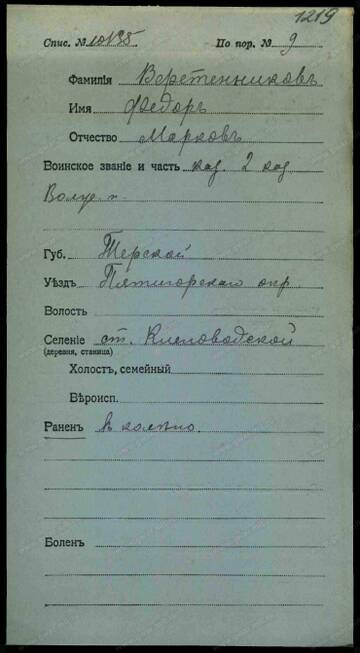 1219
Спис. № 10135 По пор. № 9
Фамилія Веретенниковъ
Имя Федоръ
Отчество Марковъ
Воинское званіе и часть каз. 2 каз
Волг. п.
Губ. Терской
Уѣздъ Пятигорскаго окр.
Волость
Селеніе ст. Кисловодской
(деревня, станица)
Холост, семейный
Вѣроисп.
Раненъ в колѣно.
Боленъ